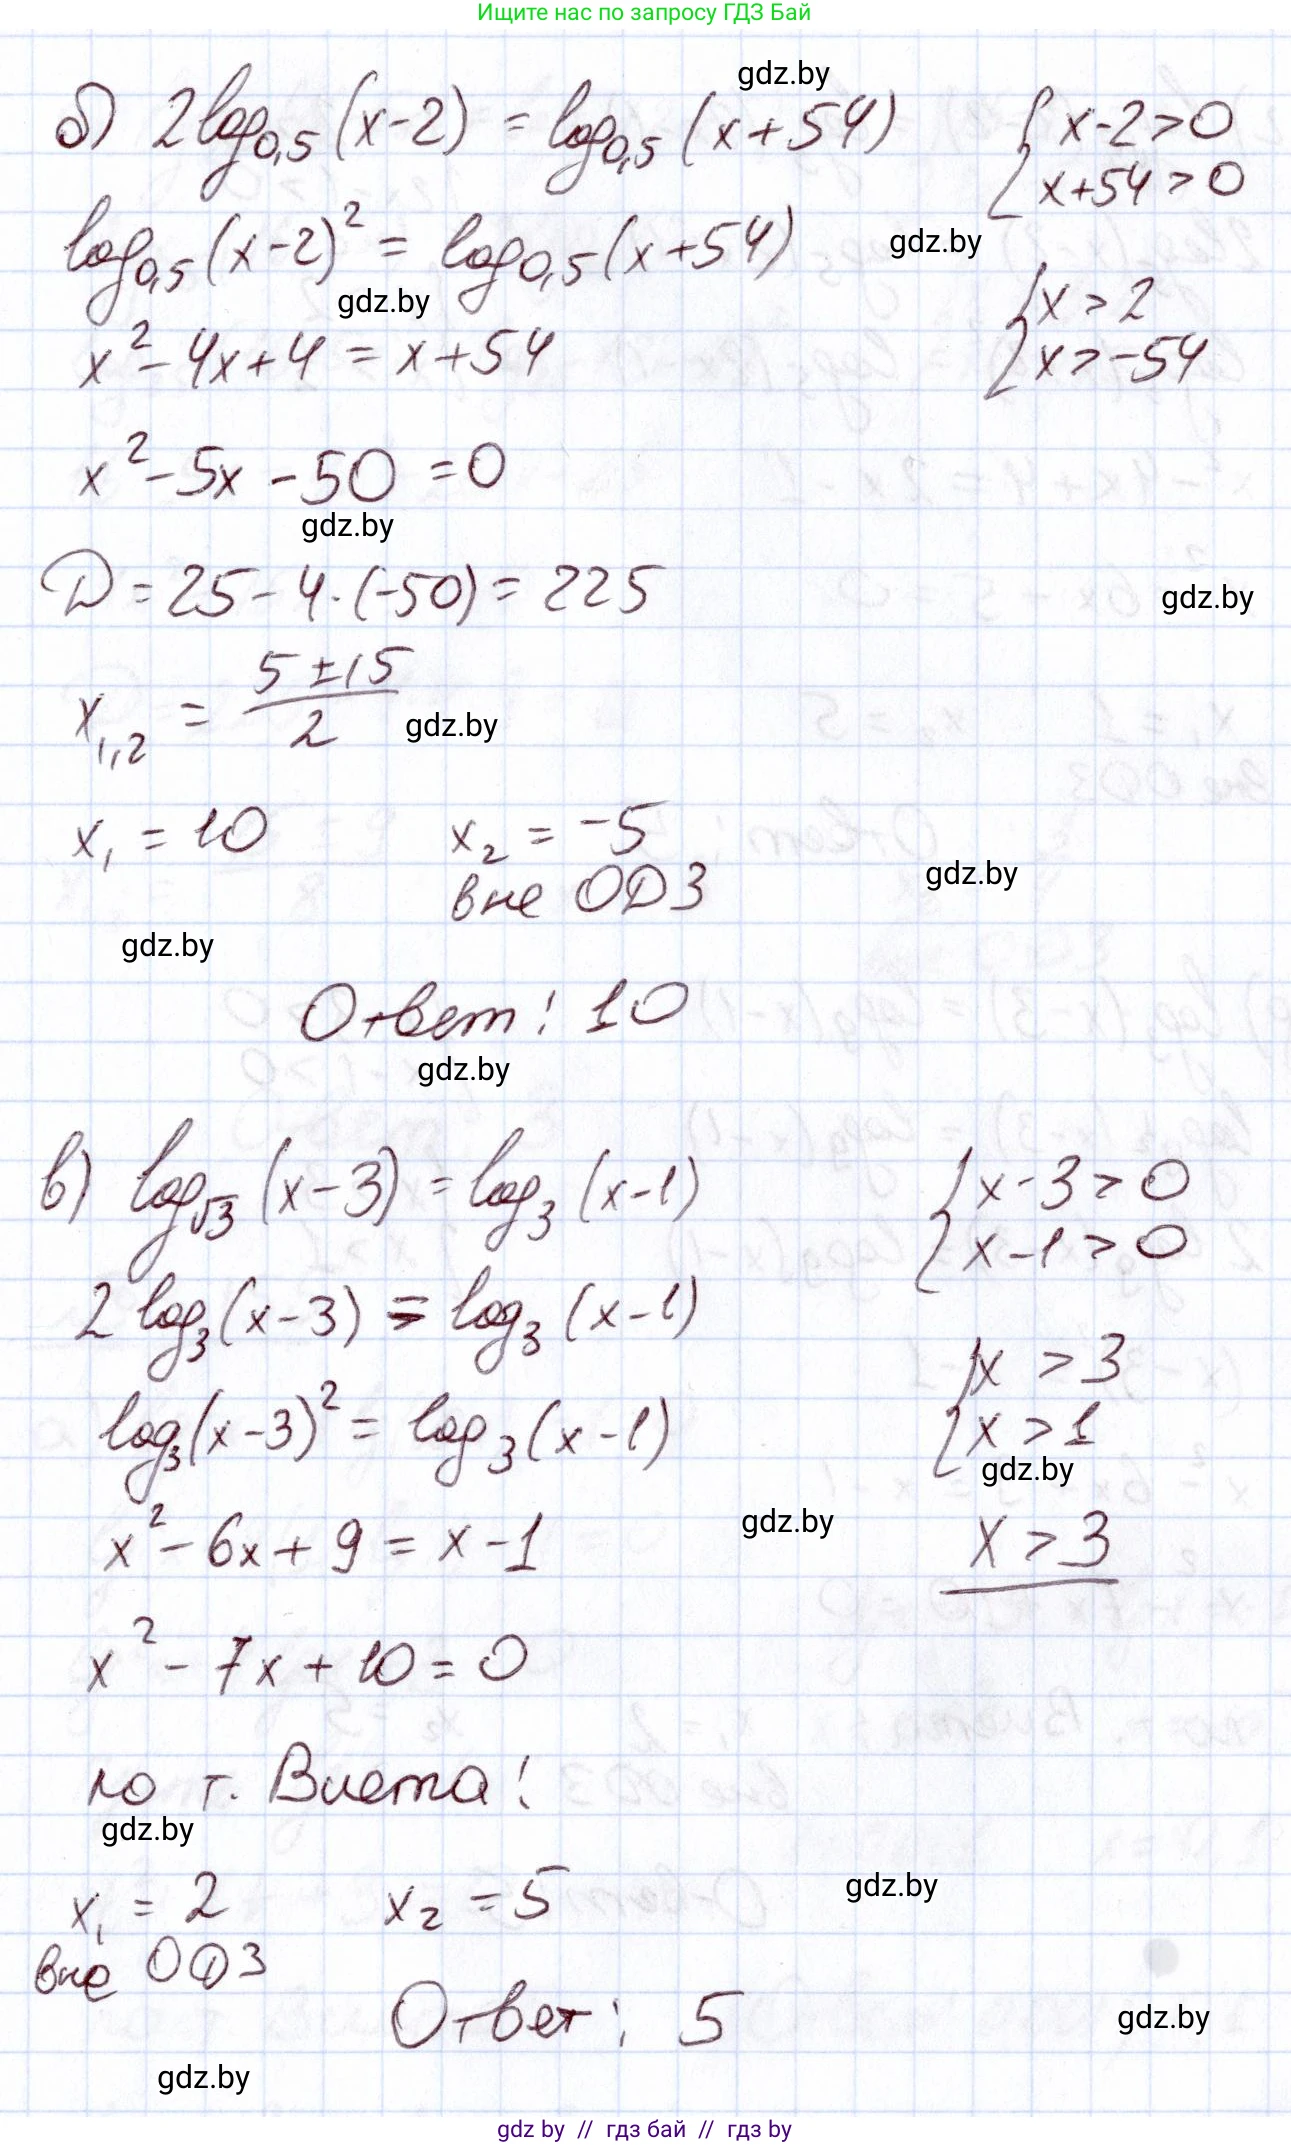 Ищите нас по запросу ГДЗ Бай
gdz.by
б) 2log₀,₅(x-2) = log₀,₅(x+54)
{x-2>0
x+54>0
log₀,₅(x-2)² = log₀,₅(x+54)
gdz.by
gdz.by
{x>2
x>-54
x²-4x+4 = x+54
x²-5x-50=0
gdz.by
D=25-4·(-50)=225
gdz.by
x₁,₂ = (5±15)/2
gdz.by
x₁ = 10 x₂ = -5
вне ОДЗ
gdz.by
gdz.by
Ответ: 10
gdz.by
в) log√3(x-3) = log₃(x-1)
{x-3>0
x-1>0
2log₃(x-3) = log₃(x-1)
{x>3
x>1
log₃(x-3)² = log₃(x-1)
gdz.by
gdz.by
x²-6x+9 = x-1
x>3
x²-7x+10=0
по т. Виета:
gdz.by
x₁ = 2 x₂ = 5
gdz.by
вне ОДЗ
Ответ: 5
gdz.by
gdz.by
gdz by // гдз бай // гдз by